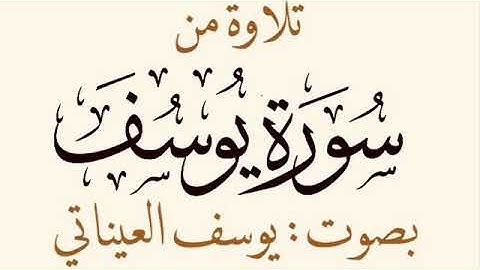 تلاوة من
سُورَة يُوسُفَ
بصوت : يوسف العيناتي